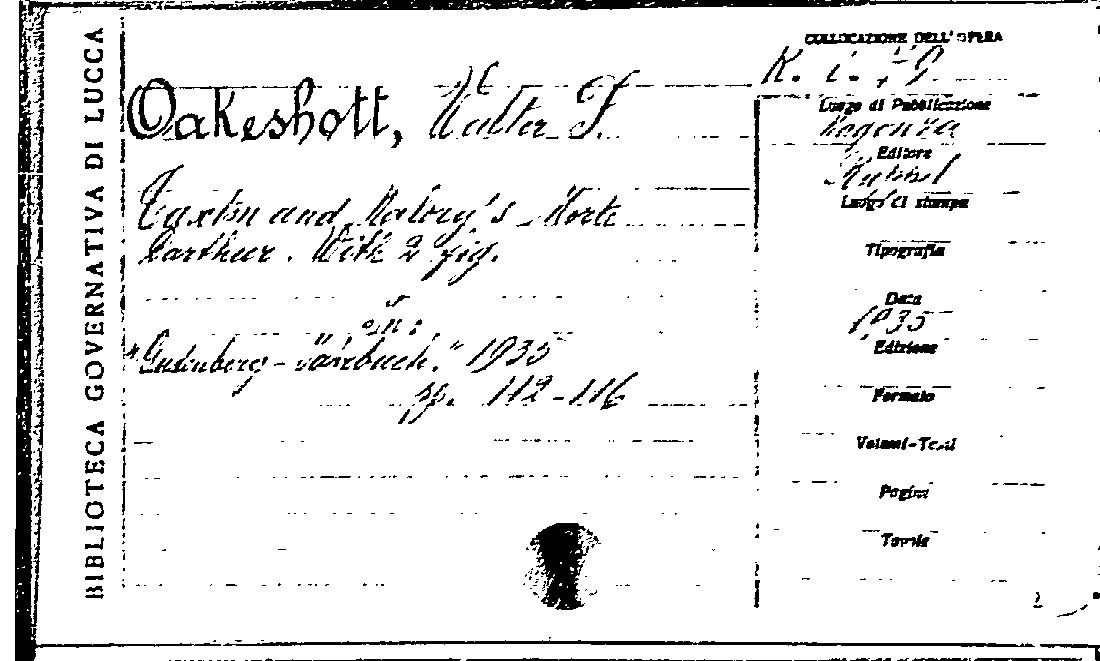 BIBLIOTECA GOVERNATIVA DI LUCCA
Oakeshott, Walter F.
Caxton and Malory's Morte
Darthur. With 2 fig.
in:
"Gutenberg-Jahrbuch." 1935
pp. 112-116
COLLOCAZIONE DELL'OPERA
K. i. 79
Luogo di Pubblicazione
Magonza
Editore
Luogo di stampa
Tipografia
Data
1935
Edizione
Formato
Volumi-Tomi
Pagine
Tavole